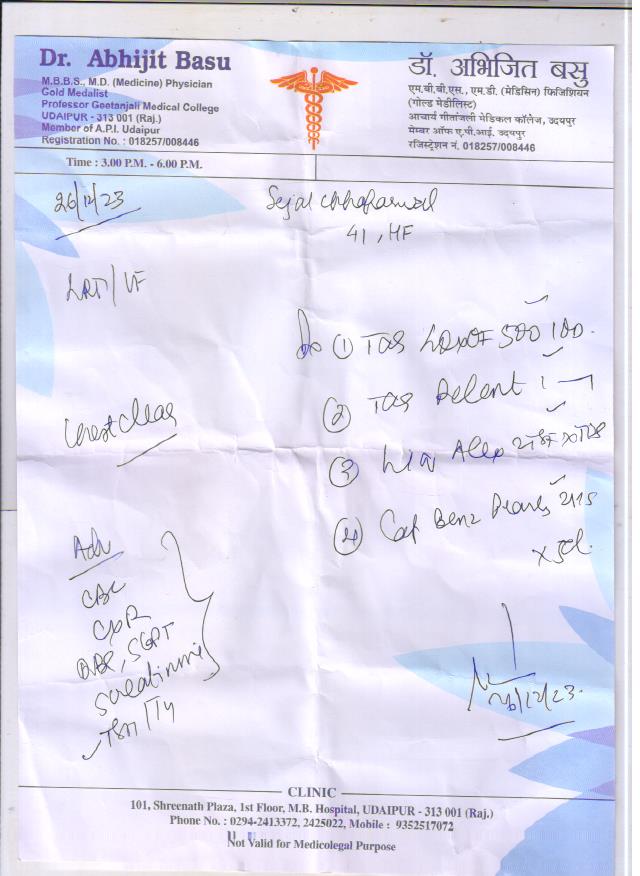 Dr. Abhijit Basu
M.B.B.S., M.D. (Medicine) Physician
Gold Medalist
Professor Geetanjali Medical College
UDAIPUR - 313 001 (Raj.)
Member of A.P.I. Udaipur
Registration No. : 018257/008446
डॉ. अभिजित बसु
एम.बी.बी.एस., एम.डी. (मेडिसिन) फिजिशियन
(गोल्ड मेडीलिस्ट)
आचार्य गीतांजली मेडिकल कॉलेज, उदयपुर
मेम्बर ऑफ ए.पी.आई. उदयपुर
रजिस्ट्रेशन नं. 018257/008446
Time : 3.00 P.M. - 6.00 P.M.
26/12/23
Sejal
41,
Chest clear
① Tab 500
② Tab
③ Alex
④ Cap Benz Pearls
x 5d.
Adv
CBC
CXR
SGPT
S creatinine
26/12/23.
CLINIC
101, Shreenath Plaza, 1st Floor, M.B. Hospital, UDAIPUR - 313 001 (Raj.)
Phone No. : 0294-2413372, 2425022, Mobile : 9352517072
Not Valid for Medicolegal Purpose